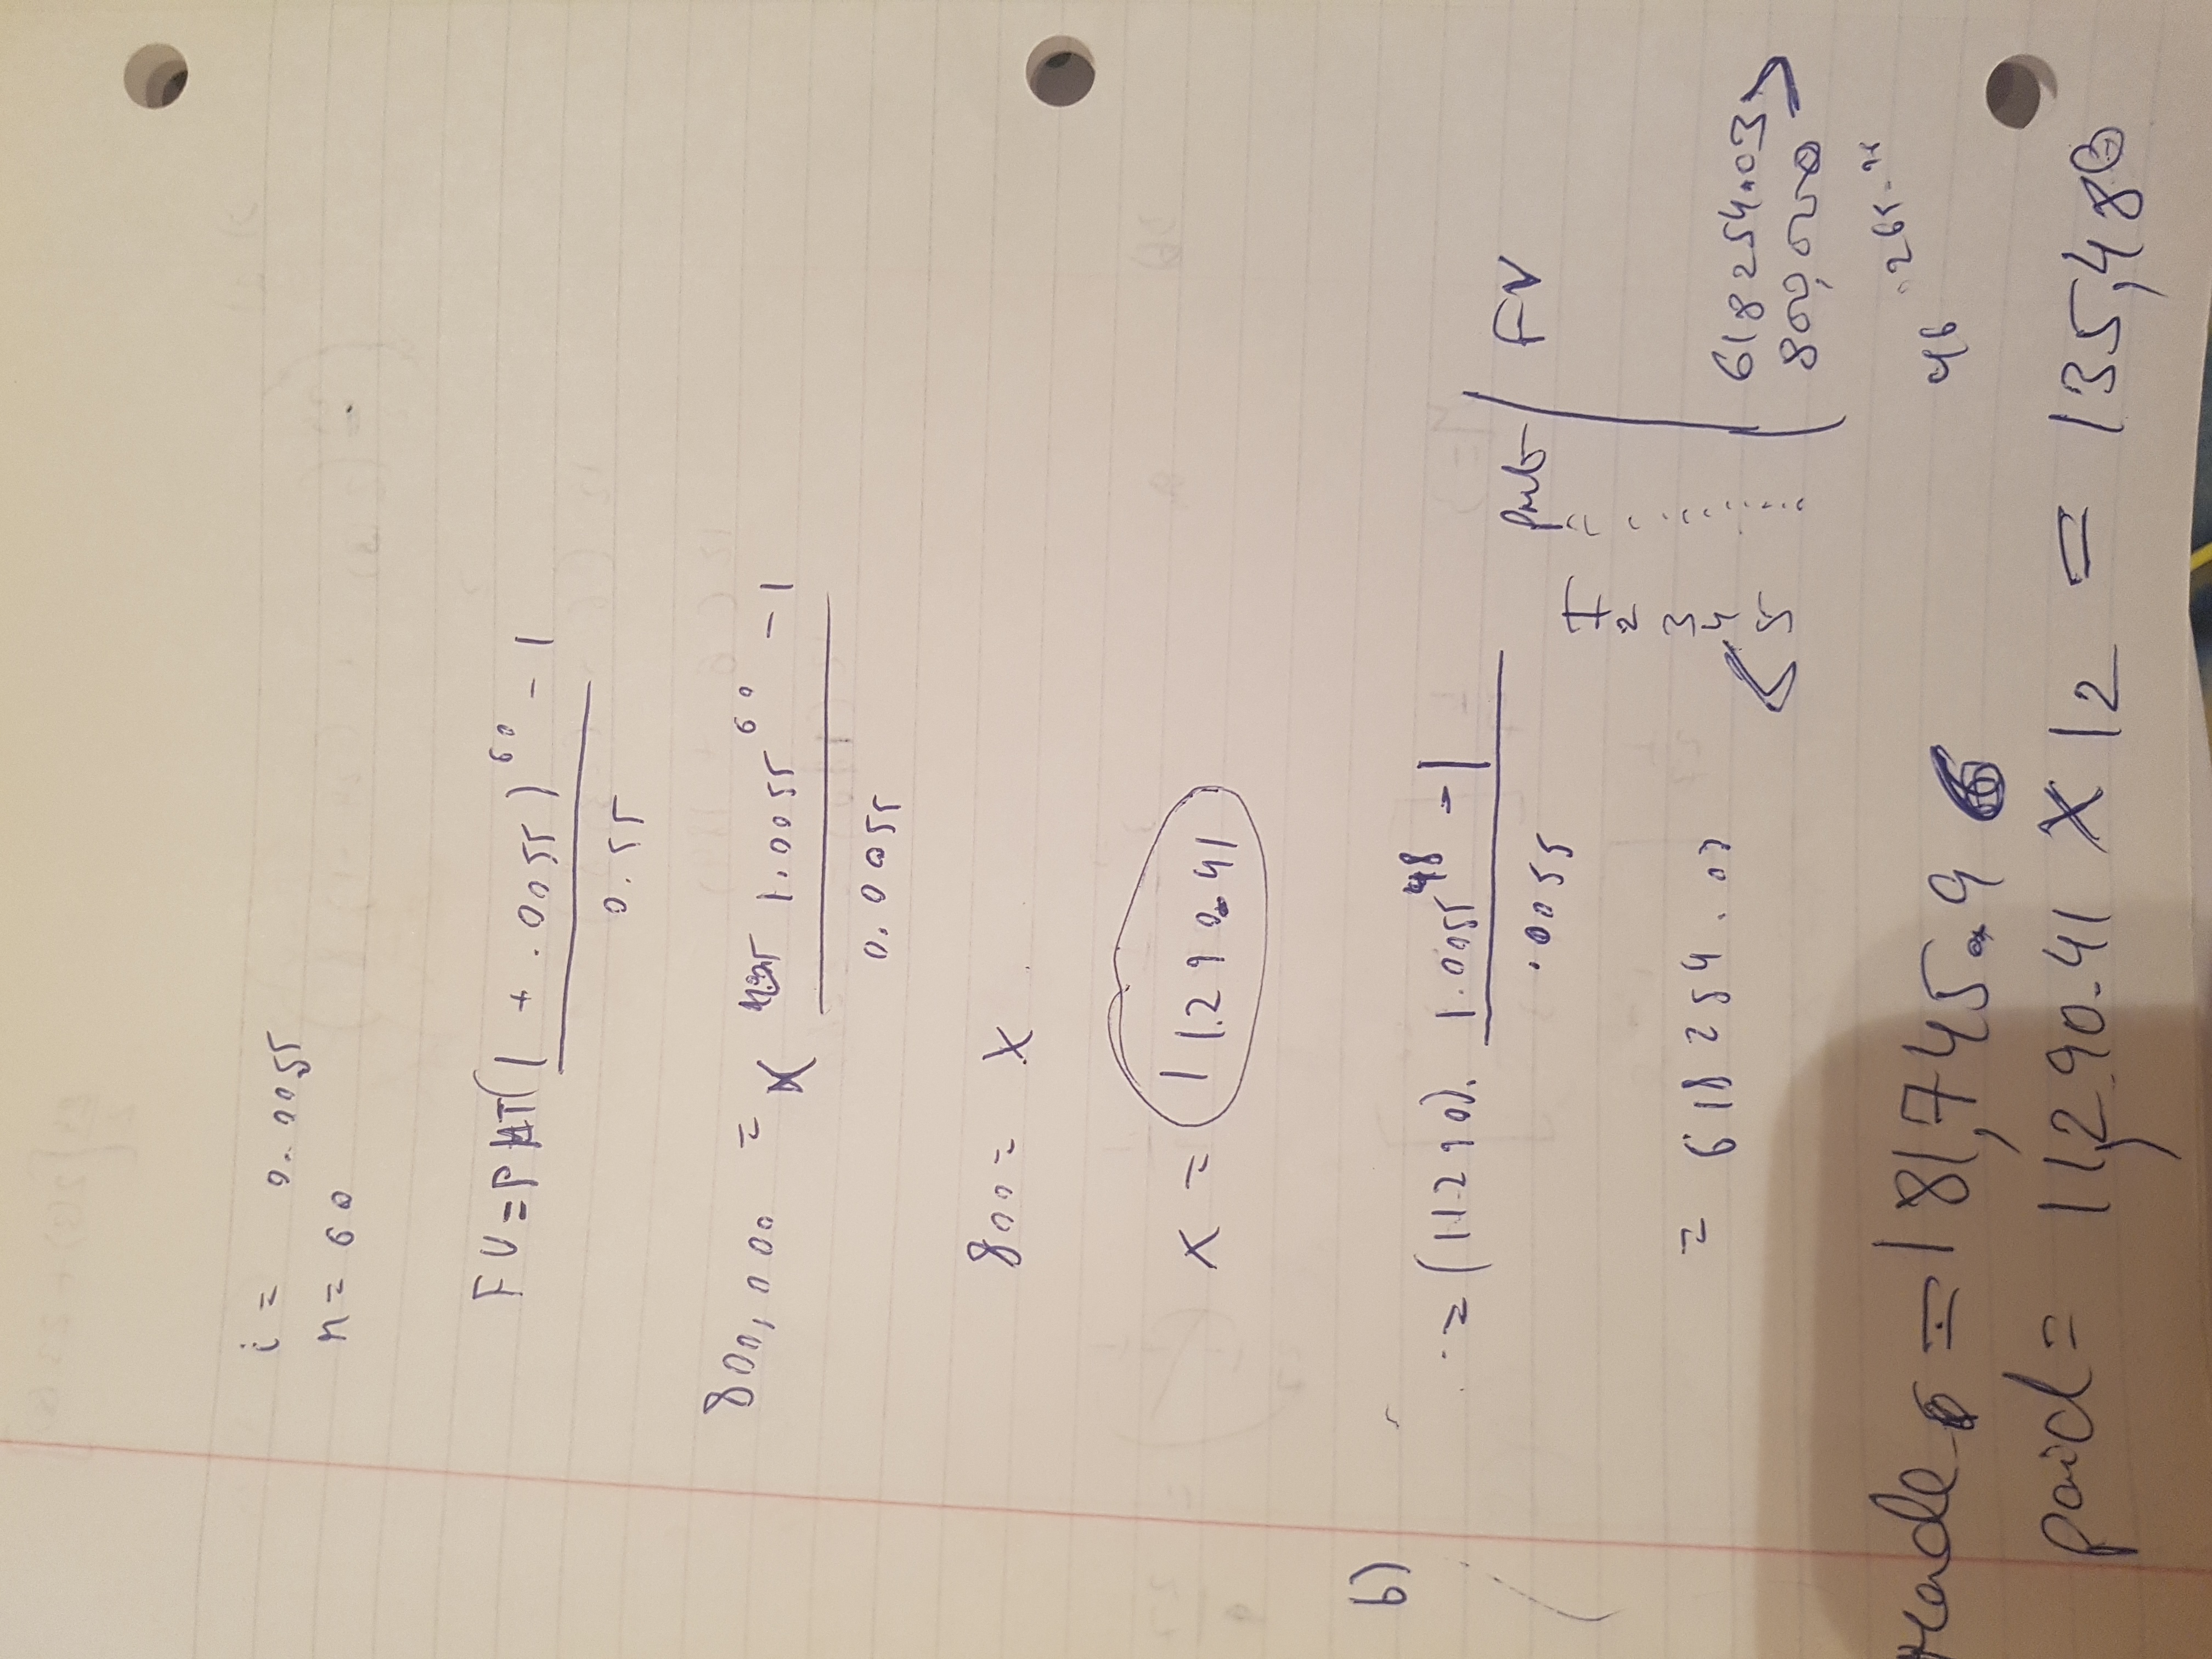 i = 0.0055
n = 60
FV = PMT(1 + .0055)^60 - 1
0.55
800,000 = X 1.0055^60 - 1
0.0055
800 = X
X = 11290.41
b) = (11290). 1.0055^48 - 1
.0055
pmt FV
1
2
3
4 618254.03
5 800,000
= 618254.03
made = 181,745.96
paid = 11,290.41 x 12 = 135,480